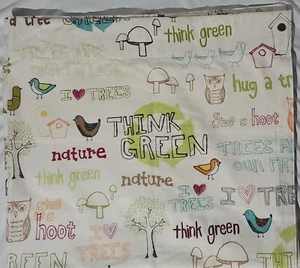 d tree
think green
hug a tr
I ♥ TREES
THINK
GREEN
Give a hoot
nature
TREES A
OUR FRI
think green
nature
I ♥
TREES
I ♥ TREE
Give a
hoot
I ♥
TREES
think green
GREEN